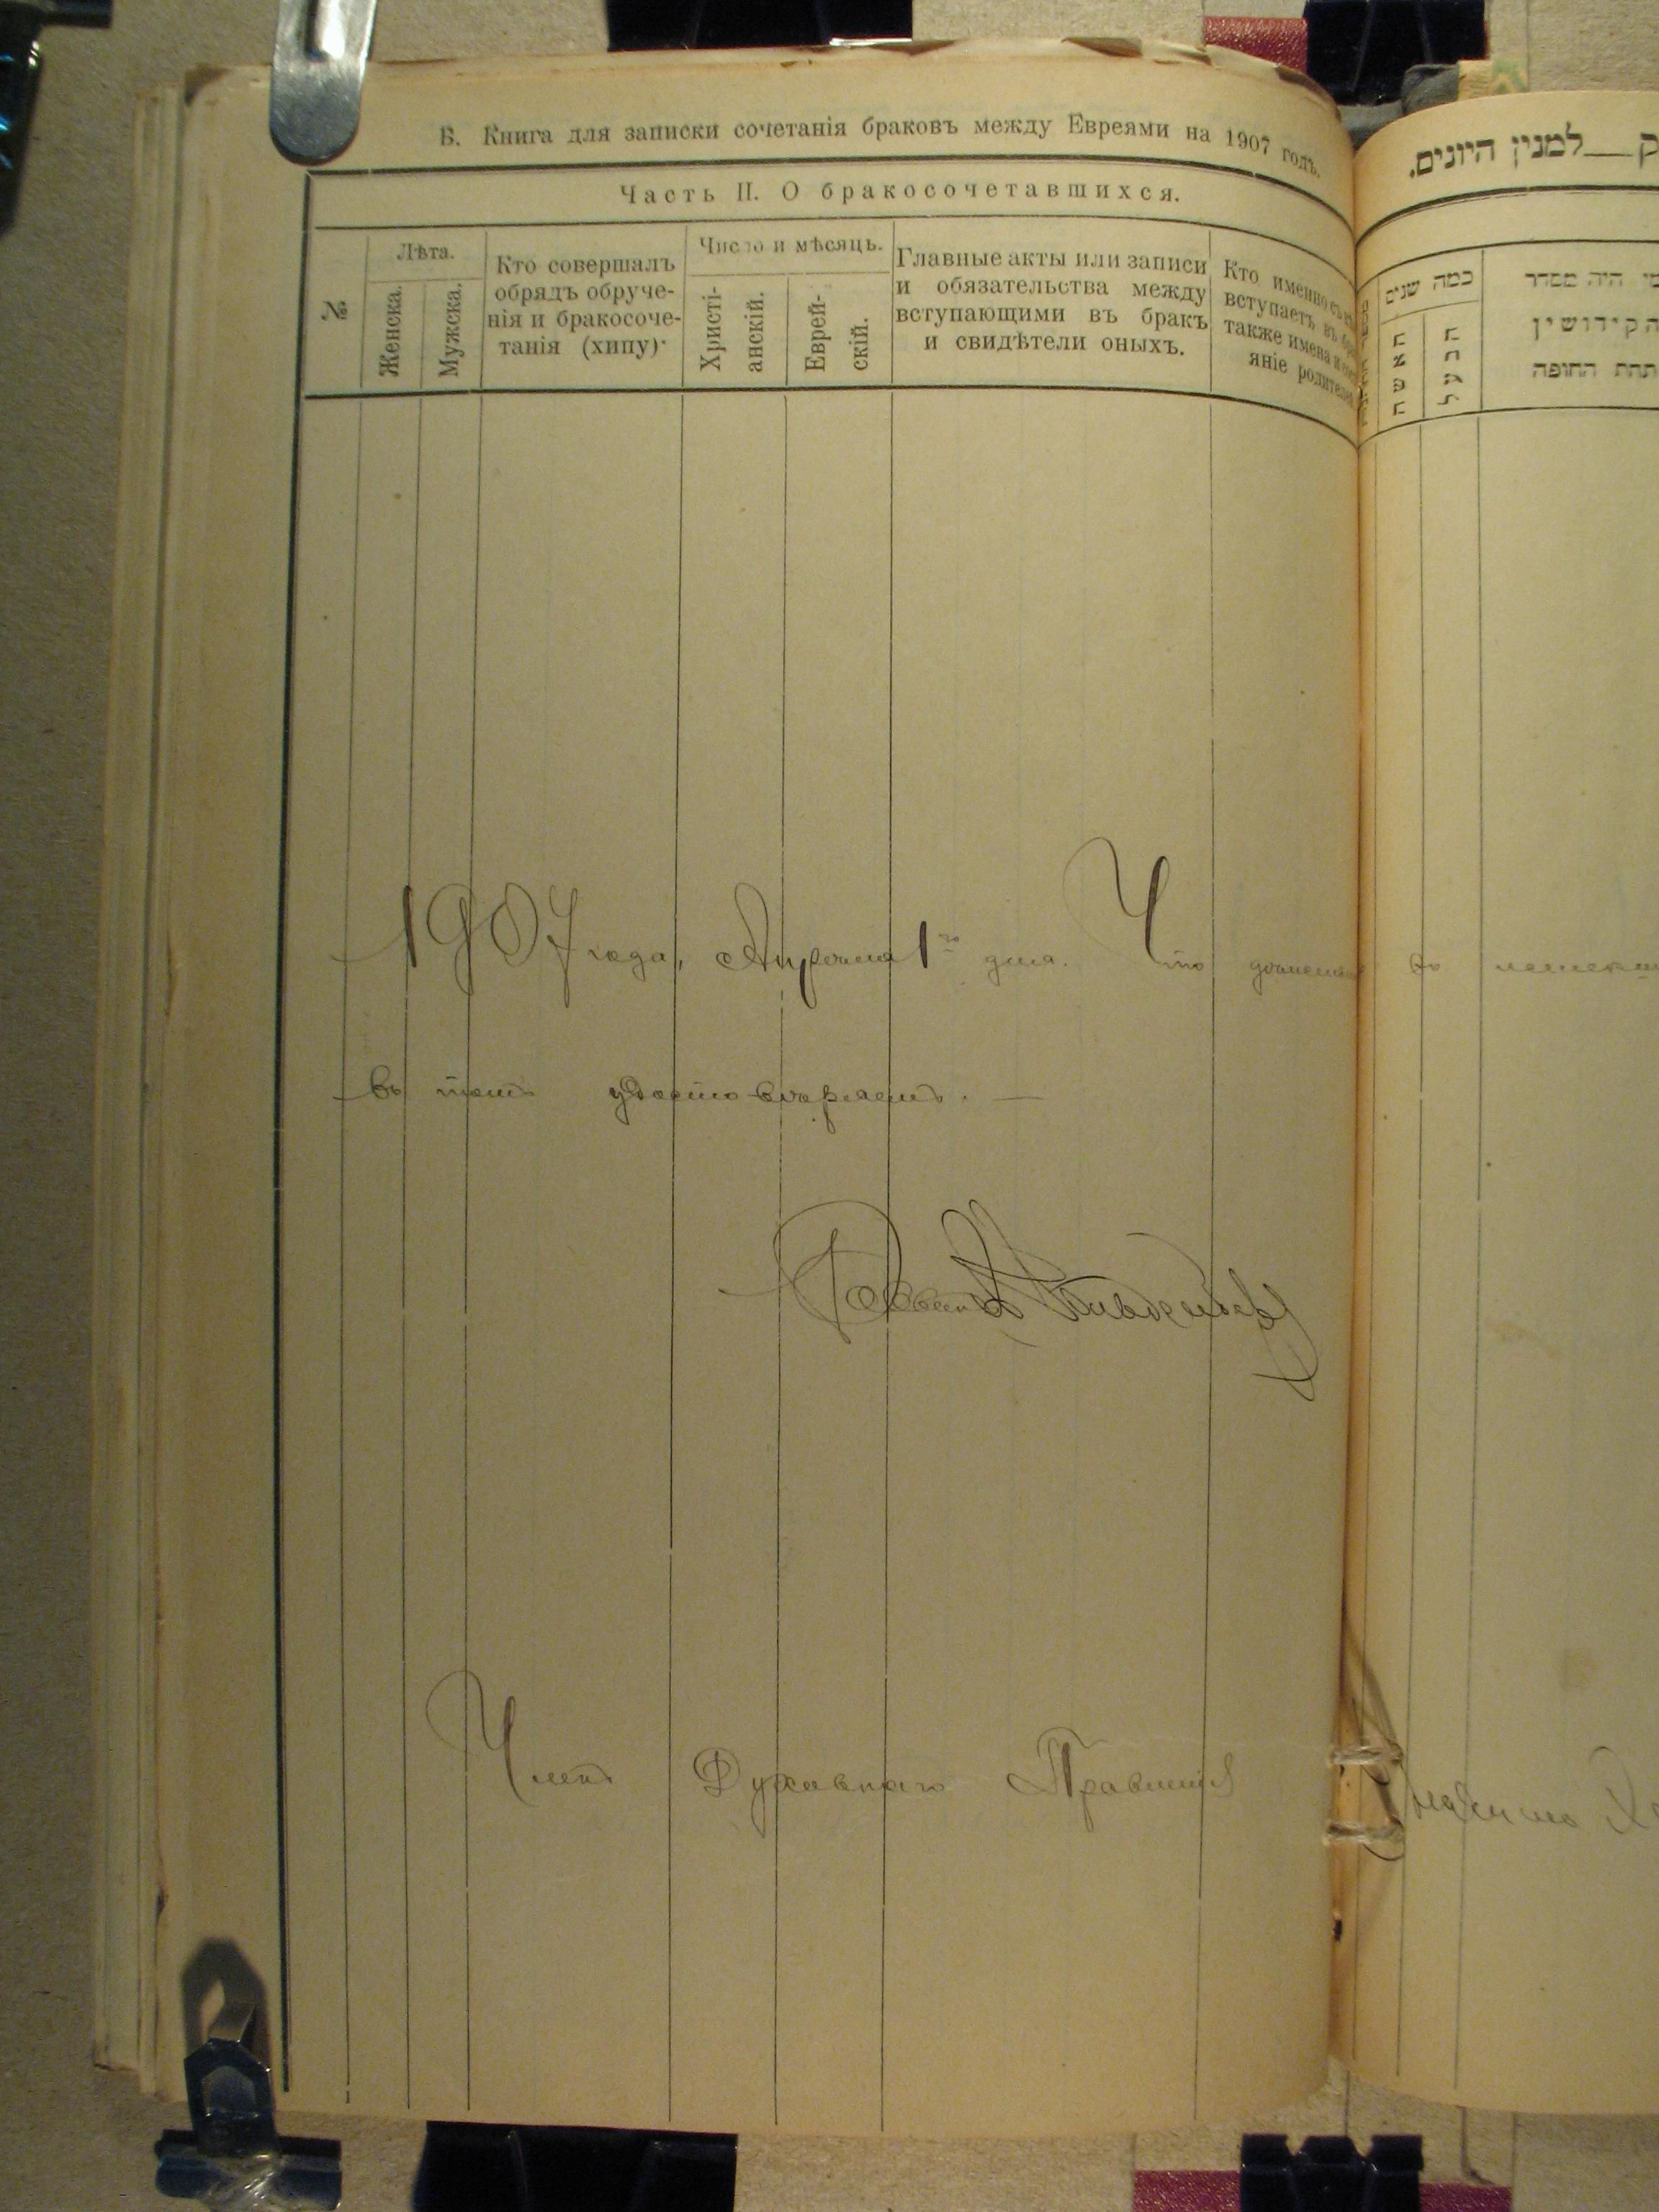 Б. Книга для записки сочетанія браковъ между Евреями на 1907 годъ.
Часть II. О бракосочетавшихся.
№
Лѣта.
Женска.
Мужска.
Кто совершалъ
обрядъ обруче-
нія и бракосоче-
танія (хипу)·
Число и мѣсяцъ.
Христі-
анскій.
Еврей-
скій.
Главные акты или записи
и обязательства между
вступающими въ бракъ
и свидѣтели оныхъ.
Кто именно съ
вступаетъ въ
также имена и
яніе родителей
1907 года, Апрѣля 1го дня. Что
въ томъ удостовѣряетъ. —
Раввинъ
Членъ Духовнаго Правленія
למנין היונים.
כמה שנים
האשה
הבעל
מי היה מסדר
הקידושין
תחת החופה